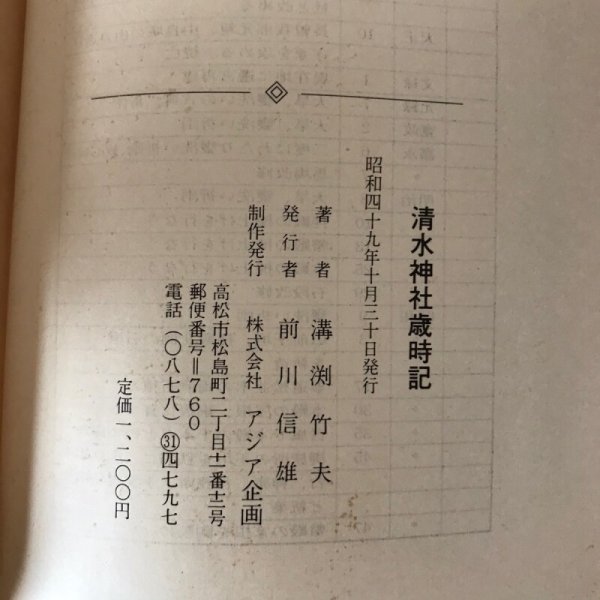 清水神社歳時記
昭和四十九年十月三十日発行
著者 溝渕竹夫
発行者 前川信雄
制作発行 株式会社 アジア企画
高松市松島町二丁目十一番十二号
郵便番号=760
電話(〇八七八)㉛四七九七
定価一、二〇〇円